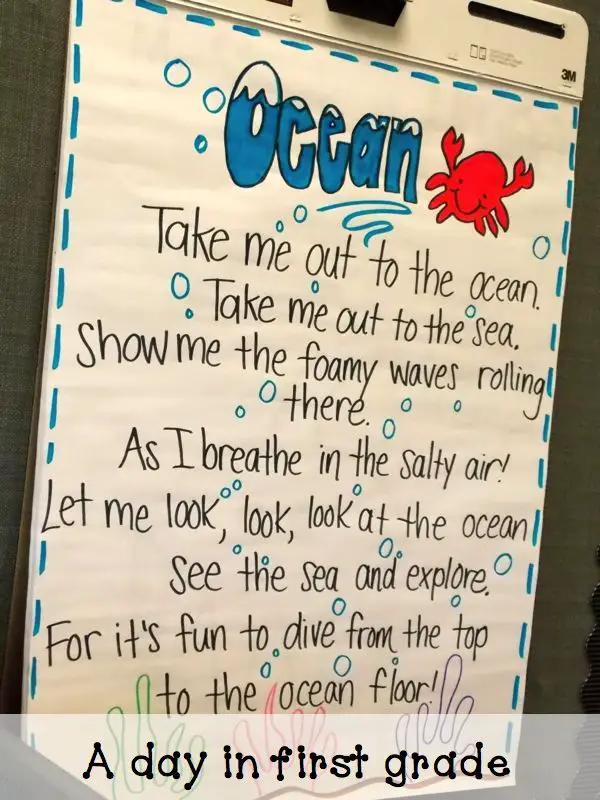 3M
Ocean
Take me out to the ocean.
Take me out to the sea.
Show me the foamy waves rolling
there.
As I breathe in the salty air!
Let me look, look, look at the ocean
See the sea and explore.
For it's fun to dive from the top
to the ocean floor!
A day in first grade